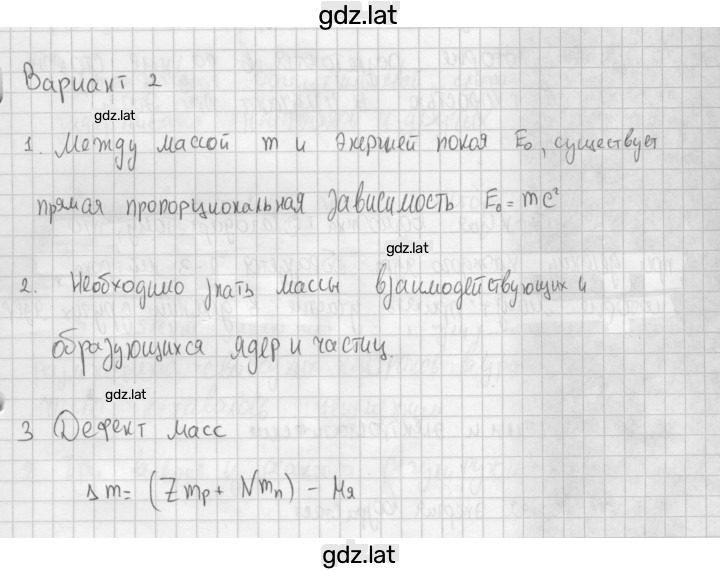 gdz.lat
Вариант 2
gdz.lat
1. Между массой m и энергией покоя E₀, существует
прямая пропорциональная зависимость E₀ = mc²
gdz.lat
2. Необходимо знать массы взаимодействующих и
образующихся ядер и частиц.
gdz.lat
3 Дефект масс
Δm = (Zmₚ + Nmₙ) − Mя
gdz.lat